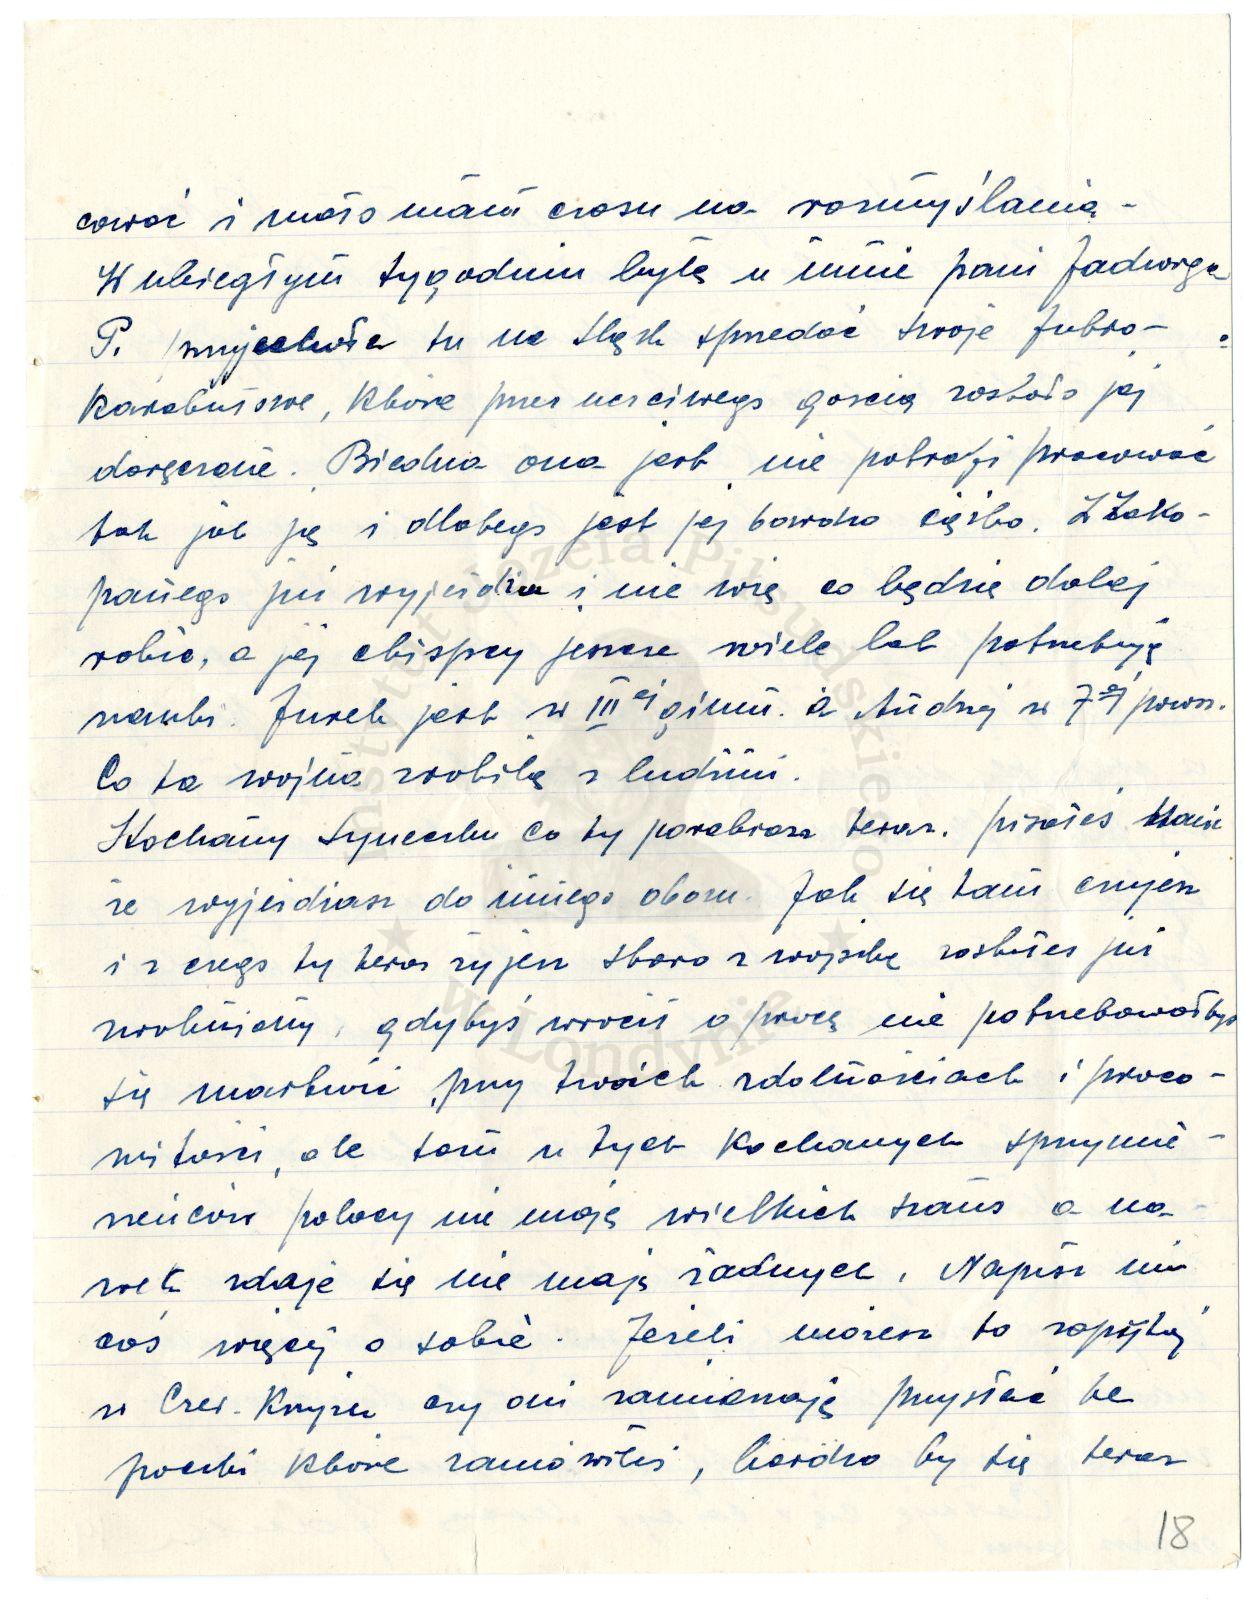 cować i mało mam czasu na rozmyślania -
W ubiegłym tygodniu była u mnie pani Jadwiga
P. przyjechała tu na Śląsk sprzedać swoje futro -
Karakułowe, które przez uczciwego gościa zostało jej
doręczone. Biedna ona jest nie potrafi pracować
tak jak ja i dlatego jest jej bardzo ciężko. Z Zako-
panego już wyjeżdża i nie wie co będzie dalej
robić, a jej chłopcy jeszcze wiele lat potrzebują
nauki. Jurek jest w III ej gimn. a Andrzej w 7 ej powsz.
Co ta wojna zrobiła z ludźmi.
Kochany Syneczku co ty porabiasz teraz. pisałeś
że wyjeżdżasz do innego obozu. Jak się tam czujesz
i z czego ty teraz żyjesz skoro z wojska zostałeś już
zwolniony, gdybyś wrócił o pracę nie potrzebowałbyś
się martwić przy twoich zdolnościach i praco-
witości, ale tam u tych Kochanych sprzymie-
rzeńców polacy nie mają wielkich szans a na-
wet zdaje się nie mają żadnych. Napisz mi
coś więcej o sobie. Jeżeli możesz to zapytaj
w Czer. Krzyżu czy oni zamierzają przysłać te
paczki które zamówiłeś, bardzo by się teraz
18
Instytut Józefa Piłsudskiego
w Londynie